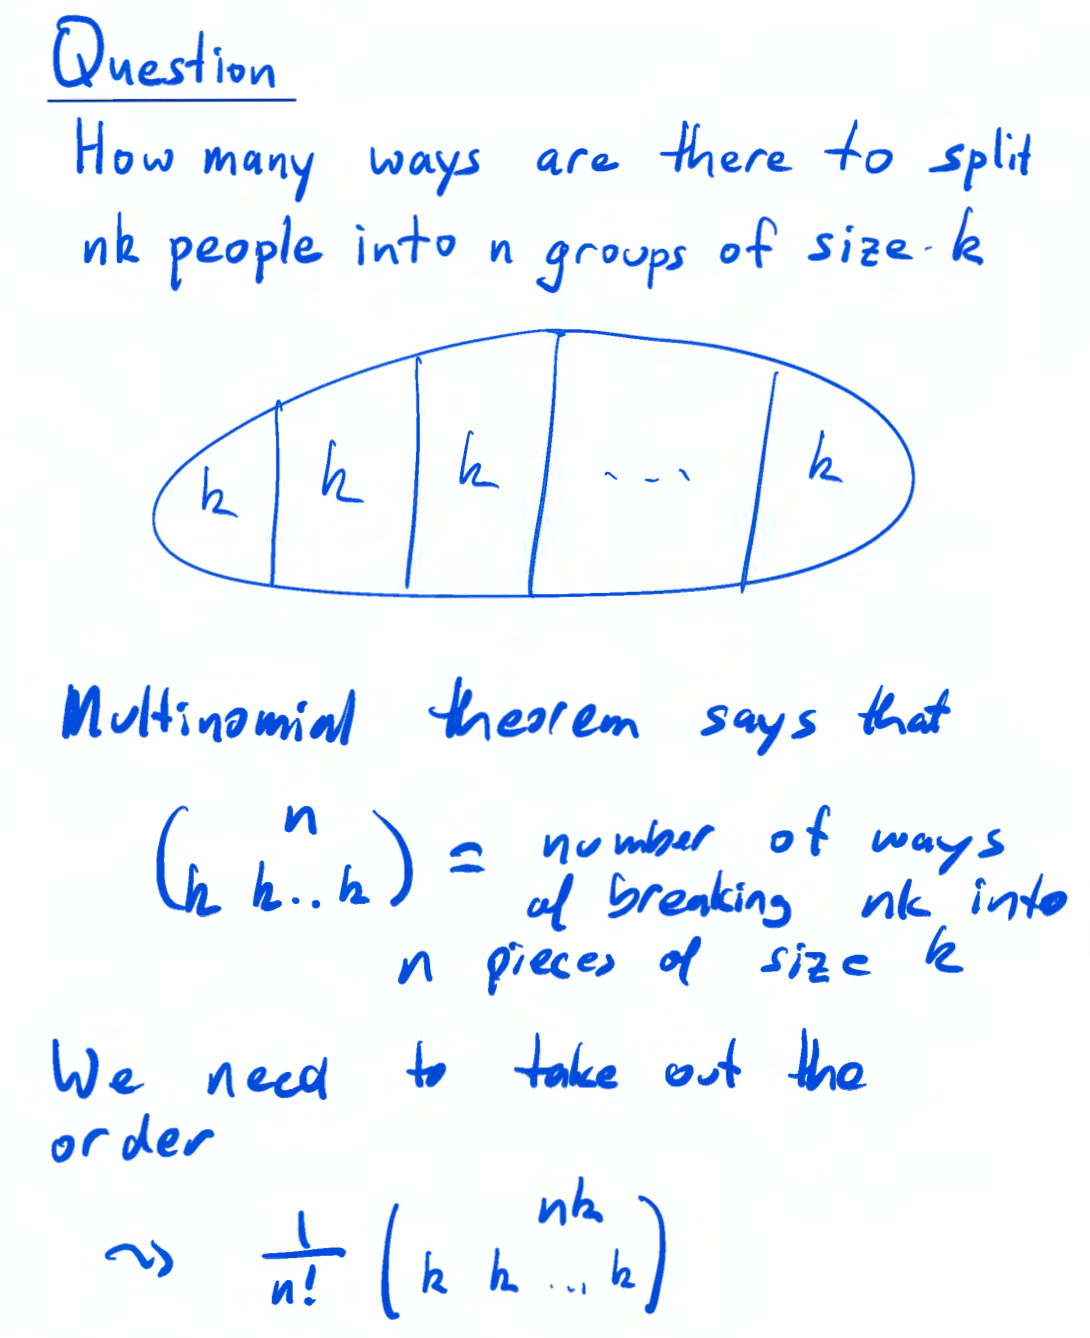 Question
How many ways are there to split
nk people into n groups of size k
k k k ... k
Multinomial theorem says that
(n
k k..k) = number of ways
of breaking nk into
n pieces of size k
We need to take out the
order
⇝ 1/n! (nk
k k ... k)